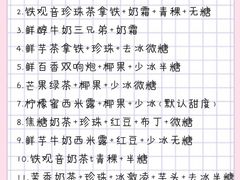 2.铁观音珍珠茶拿铁+奶霜+青稞+无糖
3.鲜醇牛奶三兄弟+奶霜
4.鲜芋茶拿铁+珍珠+去冰微糖
5.鲜百香双响炮+椰果+少冰半糖
6.芒果绿茶+椰果+少冰微糖
7.柠檬蜜西米露+少冰(默认甜度)
8.焦糖奶茶+珍珠+红豆+布丁+微糖
9.鲜芋牛奶西米露+红豆+少冰无糖
10.铁观音奶茶+青稞+半糖
11.茉香奶茶+珍珠+冰激凌+芋头+去冰半糖